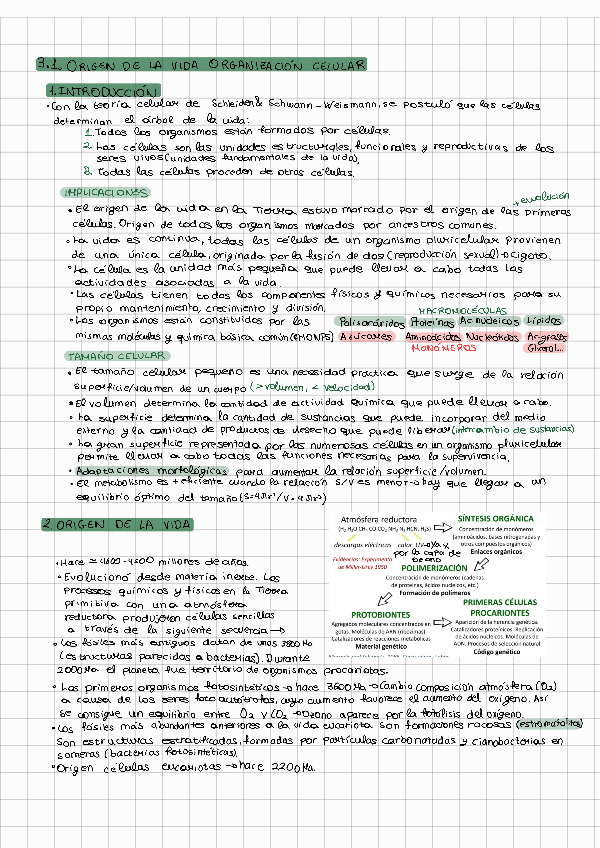 3.1 ORIGEN DE LA VIDA ORGANIZACIÓN CELULAR
1. INTRODUCCIÓN
• Con la teoría celular de Schleiden & Schwann - Weismann, se postuló que las células
determinan el árbol de la vida:
1. Todos los organismos están formados por células.
2. Las células son las unidades estructurales, funcionales y reproductivas de los
seres vivos (unidades fundamentales de la vida).
3. Todas las células proceden de otras células.
IMPLICACIONES
+ evolución
• El origen de la vida en la Tierra estuvo marcado por el origen de las primeras
células. Origen de todos los organismos marcados por ancestros comunes.
• La vida es continua, todas las células de un organismo pluricelular provienen
de una única célula, originada por la fusión de dos (reproducción sexual) → cigoto.
• La célula es la unidad más pequeña que puede llevar a cabo todas las
actividades asociadas a la vida.
• Las células tienen todos los componentes físicos y químicos necesarios para su
propio mantenimiento, crecimiento y división.
MACROMOLÉCULAS
• Los organismos están constituidos por las Polisacáridos Proteínas Ac. nucleicos Lípidos
mismas moléculas y química básica común (CHONPS) Azúcares Aminoácidos Nucleótidos A. grasos
MONÓMEROS Glicerol...
TAMAÑO CELULAR
• El tamaño celular pequeño es una necesidad práctica que surge de la relación
superficie/volumen de un cuerpo (> volumen, < velocidad)
• El volumen determina la cantidad de actividad química que puede llevar a cabo.
• La superficie determina la cantidad de sustancias que puede incorporar del medio
externo y la cantidad de productos de desecho que puede liberar (intercambio de sustancias)
• La gran superficie representada por las numerosas células en un organismo pluricelular
permite llevar a cabo todas las funciones necesarias para la supervivencia.
• Adaptaciones morfológicas para aumentar la relación superficie/volumen.
• El metabolismo es + eficiente cuando la relación s/v es menor → hay que llegar a un
equilibrio óptimo del tamaño
2. ORIGEN DE LA VIDA
• Hace millones de años.
• Evolucionó desde materia inerte. Los
procesos químicos y físicos en la Tierra
primitiva con una atmósfera
reductora produjeron células sencillas
a través de la siguiente secuencia →
Atmósfera reductora
(H₂ H₂O CH₄ CO CO₂ NH₃ N₂ HCN, H₂S)
descargas eléctricas calor UV
por la capa de
ozono
Evidencias: Experimento
de Miller-Urey 1950
SÍNTESIS ORGÁNICA
Concentración de monómeros
(aminoácidos, bases nitrogenadas y
otros compuestos orgánicos)
Enlaces orgánicos
POLIMERIZACIÓN
Concentración de monómeros (cadenas
de proteínas, ácidos nucleicos, etc.)
Formación de polímeros
PROTOBIONTES
Agregados moleculares concentrados en
gotas. Moléculas de ARN (ribozimas)
Catalizadores de reacciones metabólicas
Material genético
PRIMERAS CÉLULAS
PROCARIONTES
Aparición de la herencia genética.
Catalizadores proteínicos. Replicación
de ácidos nucleicos. Moléculas de
ADN. Procesos de selección natural
Código genético
• Los fósiles más antiguos datan de unos
(estructuras parecidas a bacterias). Durante
2000 Ma el planeta fue territorio de organismos procariotas.
• Los primeros organismos fotosintéticos → hace 3600 Ma → cambio composición atmósfera (O₂)
a causa de los seres fotoautótrofos, cuyo aumento favorece el aumento del oxígeno. Así
se consigue un equilibrio entre O₂ y CO₂ → Ozono aparece por la fotólisis del oxígeno.
• Los fósiles más abundantes anteriores a la vida eucariota son formaciones rocosas (estromatolitos)
Son estructuras estratificadas, formadas por partículas carbonatadas y cianobacterias en
someras (bacterias fotosintéticas).
• Origen células eucariotas → hace 2200 Ma.